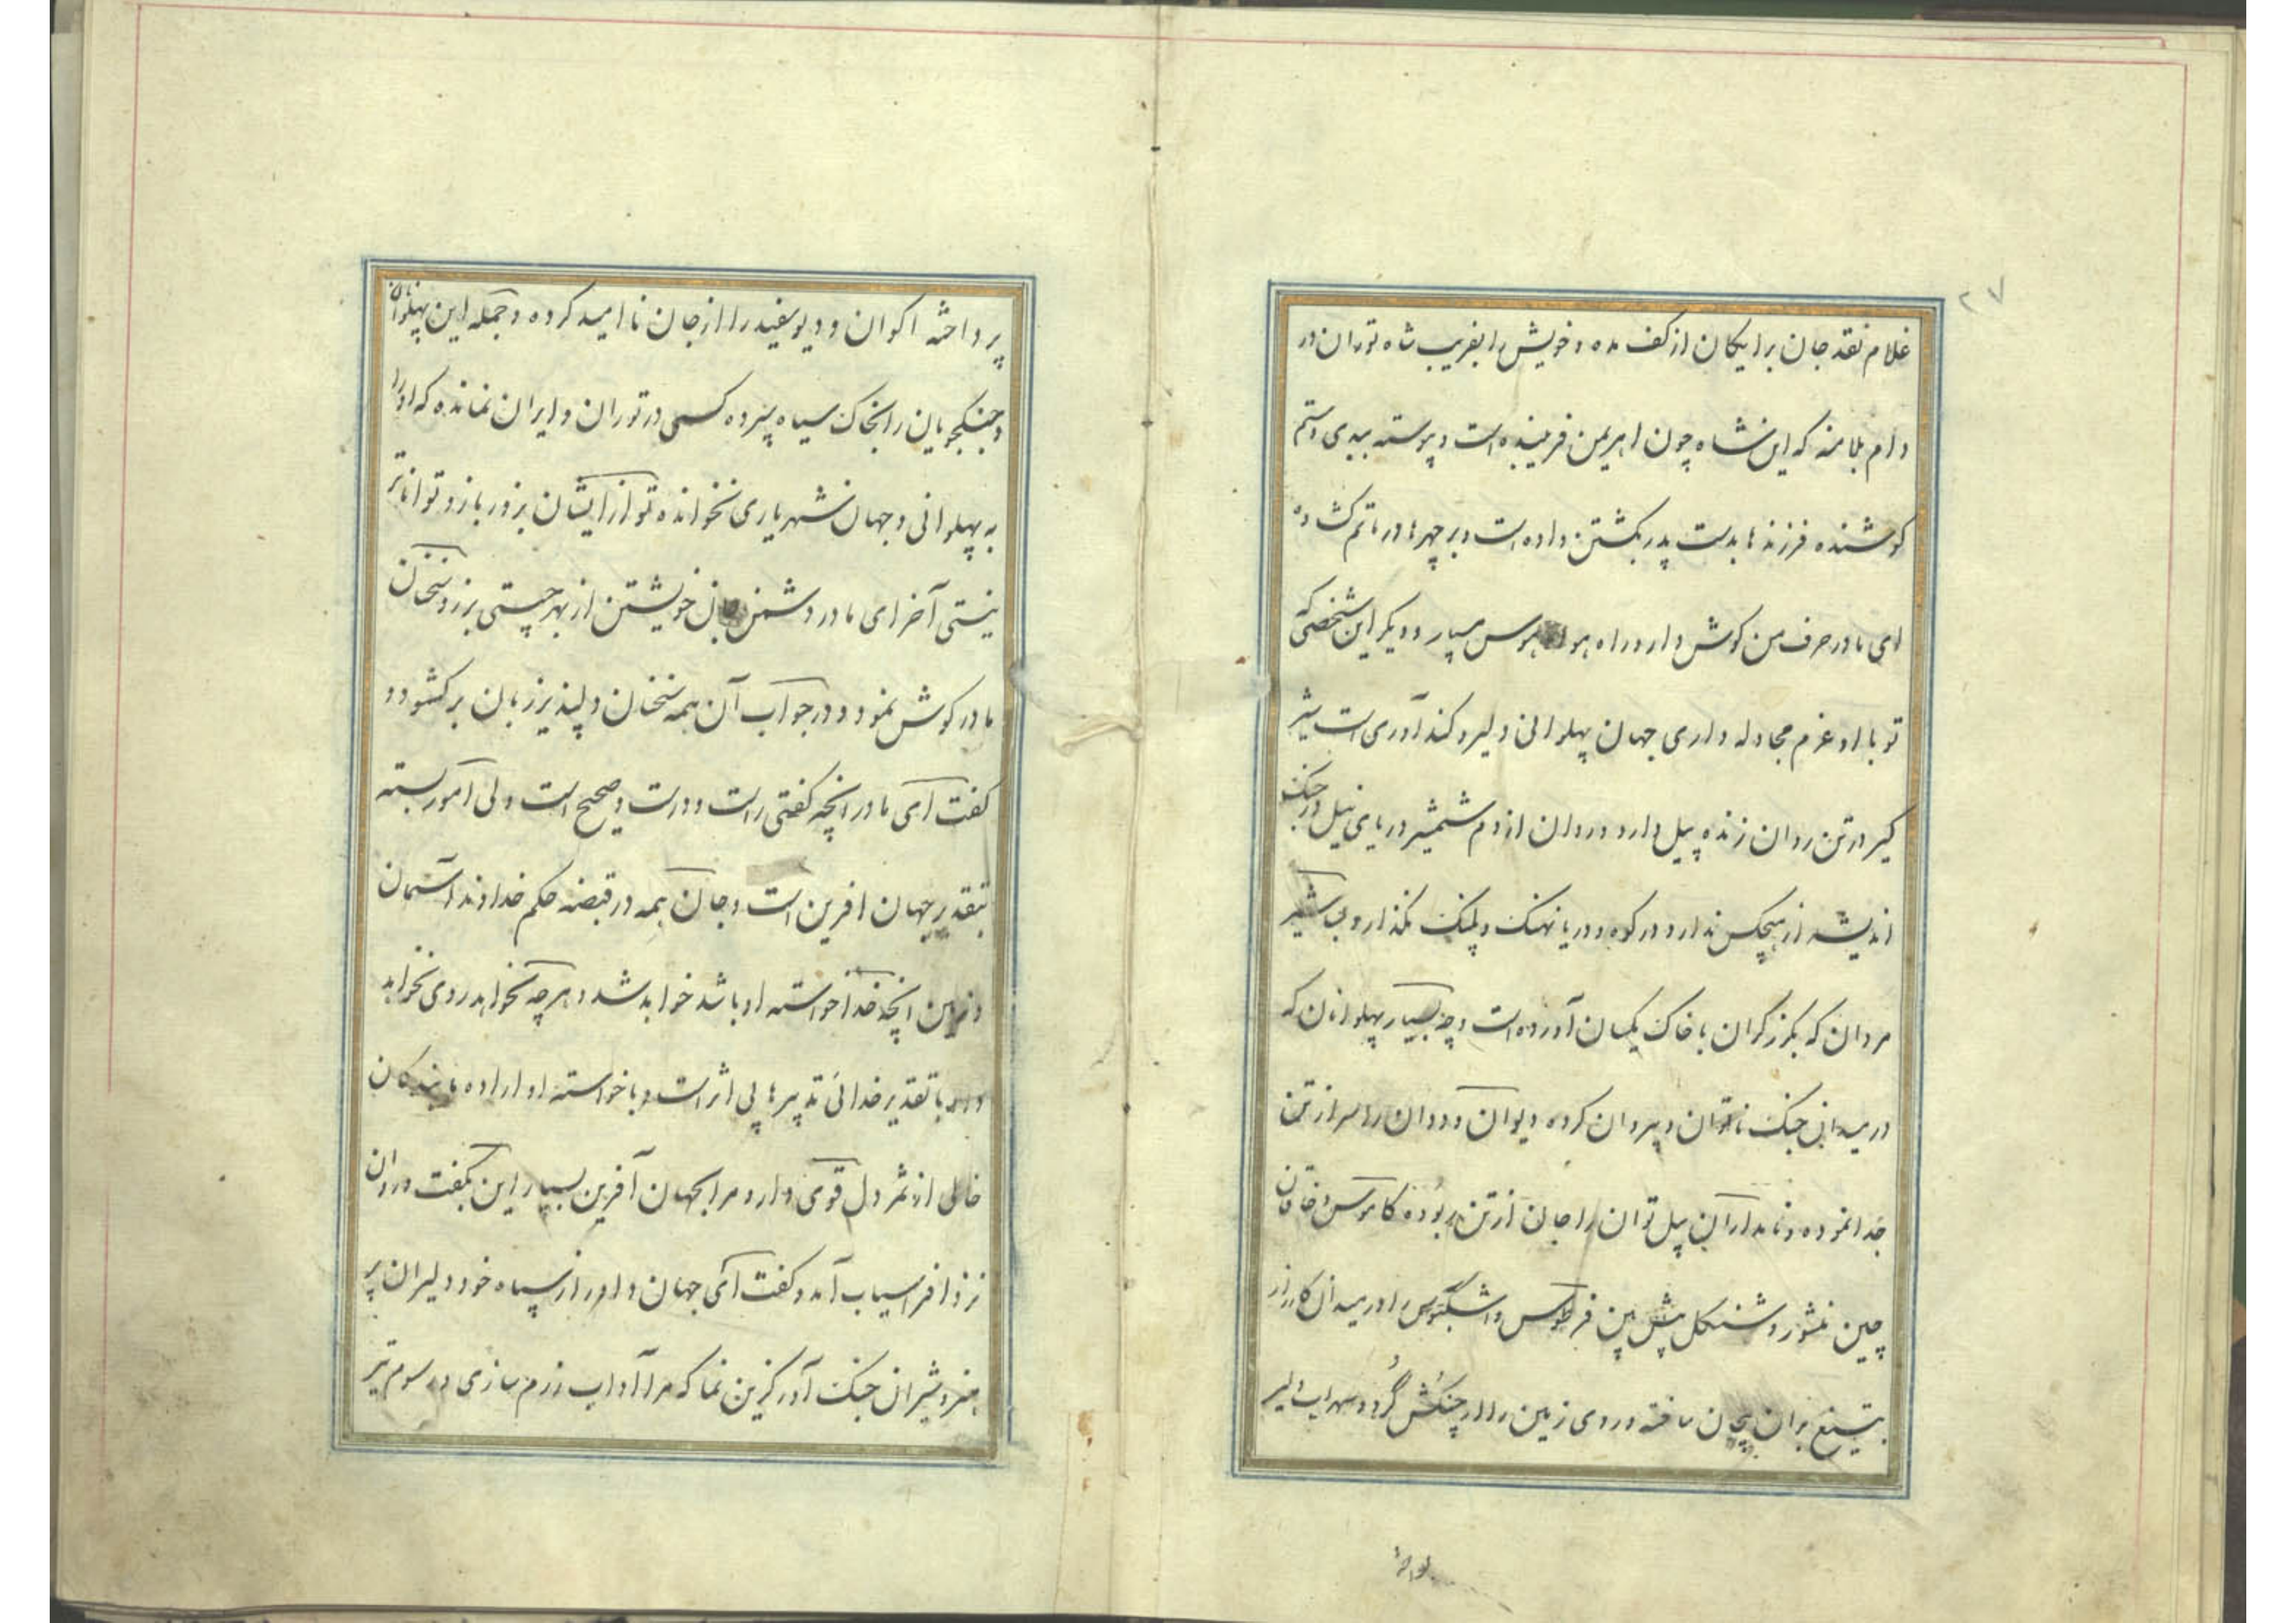 ۲۷
غلام نقد جان برایکان از کف مده و خویش را بفریب شاه توران در
دام بلا منه که این شاه چون اهریمن فریبنده است و پیوسته ببدی و ستم
کوشنده فرزندها بدست پدر بکشتن داده است و بر چهرها در ماتم کشاده
ای مادر حرف من کوش دار و راه هوا هوس مسپار و دیکر این شخصی که
تو با او عزم مجادله داری جهان پهلوانی دلیر و کندآوری است شیر
کیر در تن روان زنده پیل دارد و روان از دم شمشیر دریای نیل در جنک
اندیشه از هیچکس ندارد در کوه و دریا نهنک و پلنک نکذارد بسا شیر
مردان که بکرز کران با خاک یکسان آورده است و چه بسیار پهلوانان که
در میدان جنک ناتوان و پیروان کرده دیوان و ددان را سر از تن
جدا نموده و نامداران پیل توان را جان از تن ربوده کاموس و خاقان
چین منشور و شنکل پیش بین فرطوس و اشکبوس را در میدان کارزار
بتیغ بران بیجان ساخته و روی زمین را از چنکش کرد و سهراب دلیر
پرداخته اکوان و دیو سفید را از جان ناامید کرده و جمله این پهلوانان
و جنکجویان را بخاک سیاه سپرده کسی در توران و ایران نمانده که او را
به پهلوانی و جهان شهریاری نخوانده تو از ایشان بزور بازو تواناتر
نیستی آخر ای مادر دشمن جان خویشتن از بهر چیستی برزو سخنان
مادر کوش نمود و در جواب آن همه سخنان دلپذیر زبان بر کشود و
کفت ای مادر انچه کفتی راست و درست و صحیح است ولی امور بسته
بتقدیر جهان افرین است و جان همه در قبضه حکم خداوند آسمان
و زمین انچه خدا خواسته او باشد خواهد شد و هرچه نخواهد روی نخواهد
داد با تقدیر خدائی تدبیرها بی اثر است و با خواسته او اراده بندکان
خالی از ثمر دل قوی دار و مرا بجهان آفرین بسپار این بکفت و روان
نزد افراسیاب آمد و کفت ای جهان داور از سپاه خود دلیران پر
هنر و شیران جنک آور کزین نما که مرا آداب رزم سازی و رسوم تیر